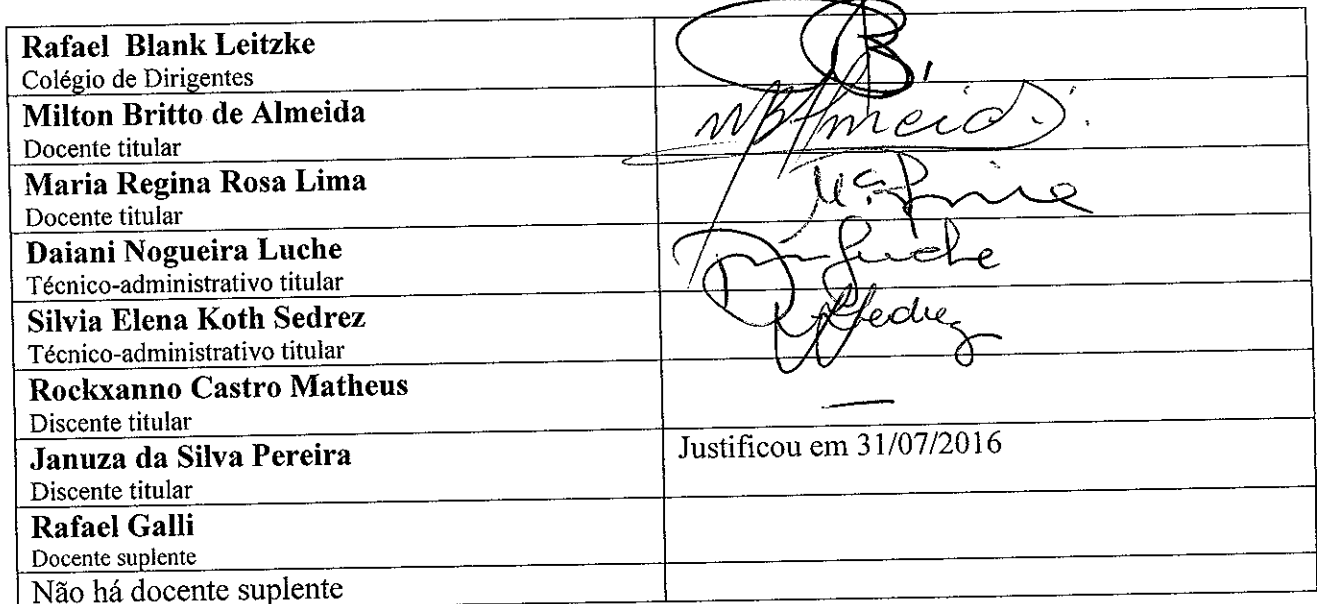 Rafael Blank Leitzke
Colégio de Dirigentes
Milton Britto de Almeida
MBAlmeida
Docente titular
Maria Regina Rosa Lima
Mª Lima
Docente titular
Daiani Nogueira Luche
Luche
Técnico-administrativo titular
Silvia Elena Koth Sedrez
Sedrez
Técnico-administrativo titular
Rockxanno Castro Matheus
—
Discente titular
Januza da Silva Pereira
Justificou em 31/07/2016
Discente titular
Rafael Galli
Docente suplente
Não há docente suplente